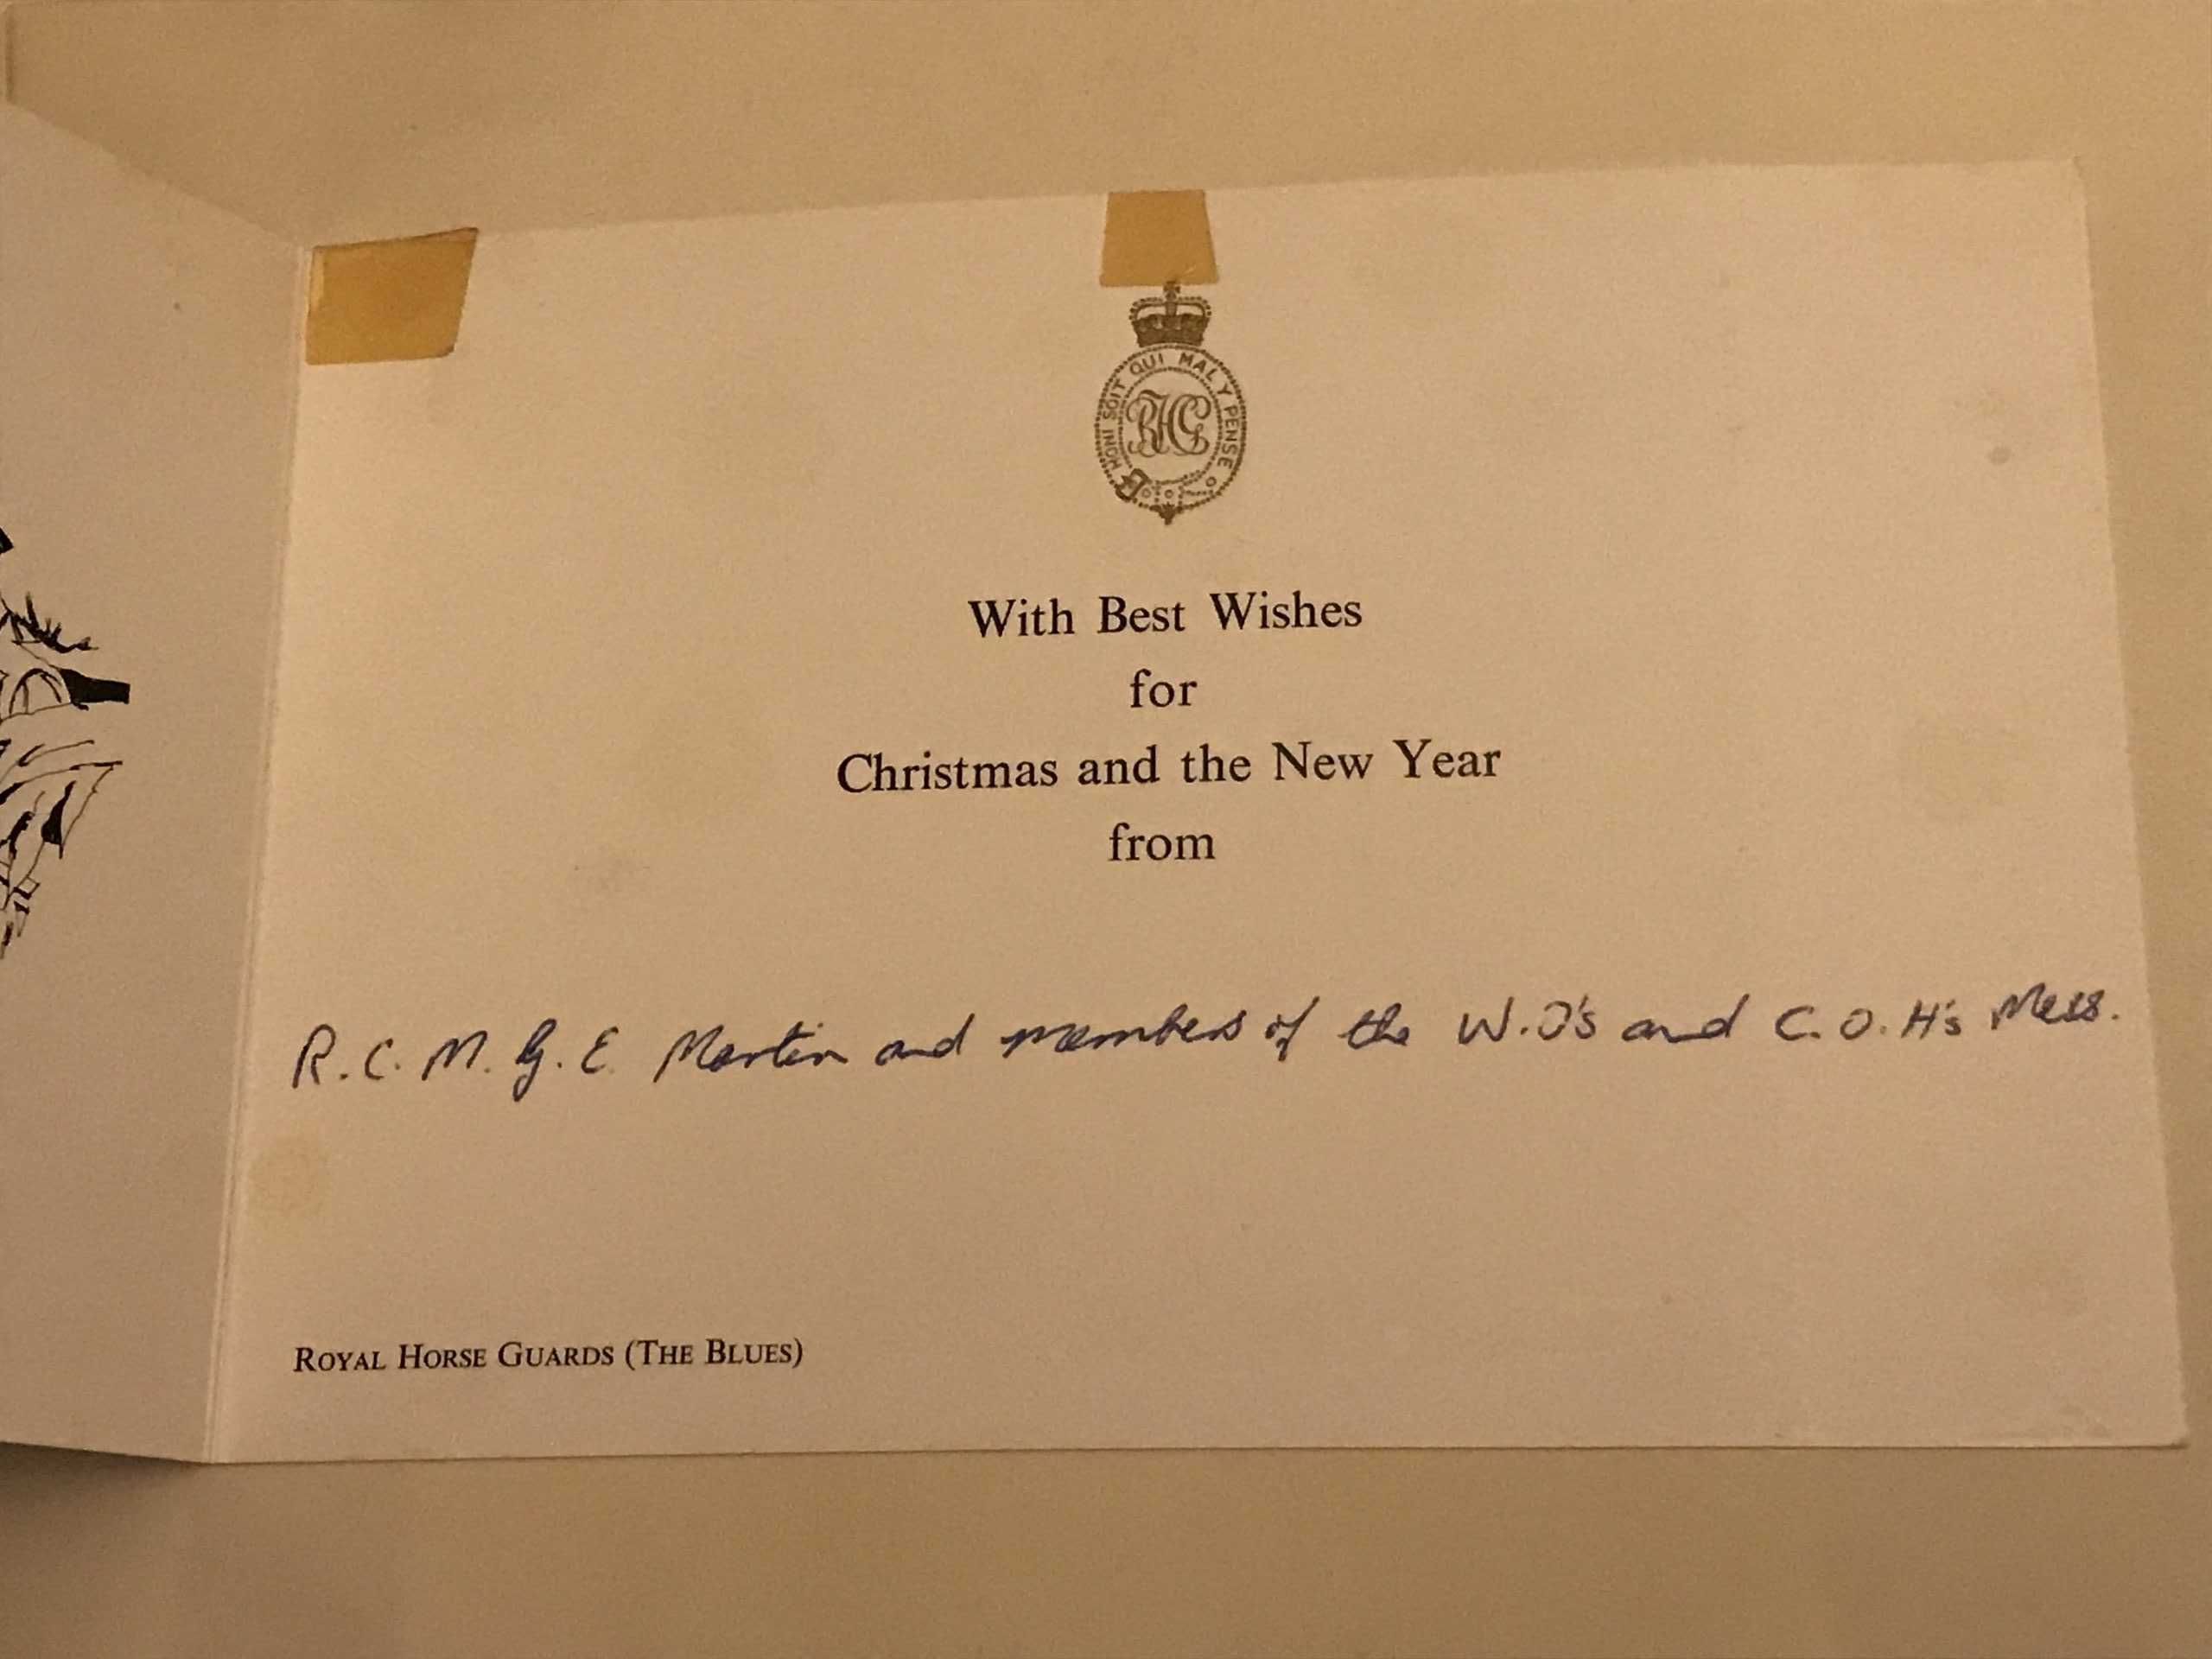 HONI SOIT QUI MAL Y PENSE
RHG
With Best Wishes
for
Christmas and the New Year
from
R.C.M. G.E. Martin and members of the W.O's and C.O.H's Mess.
ROYAL HORSE GUARDS (THE BLUES)